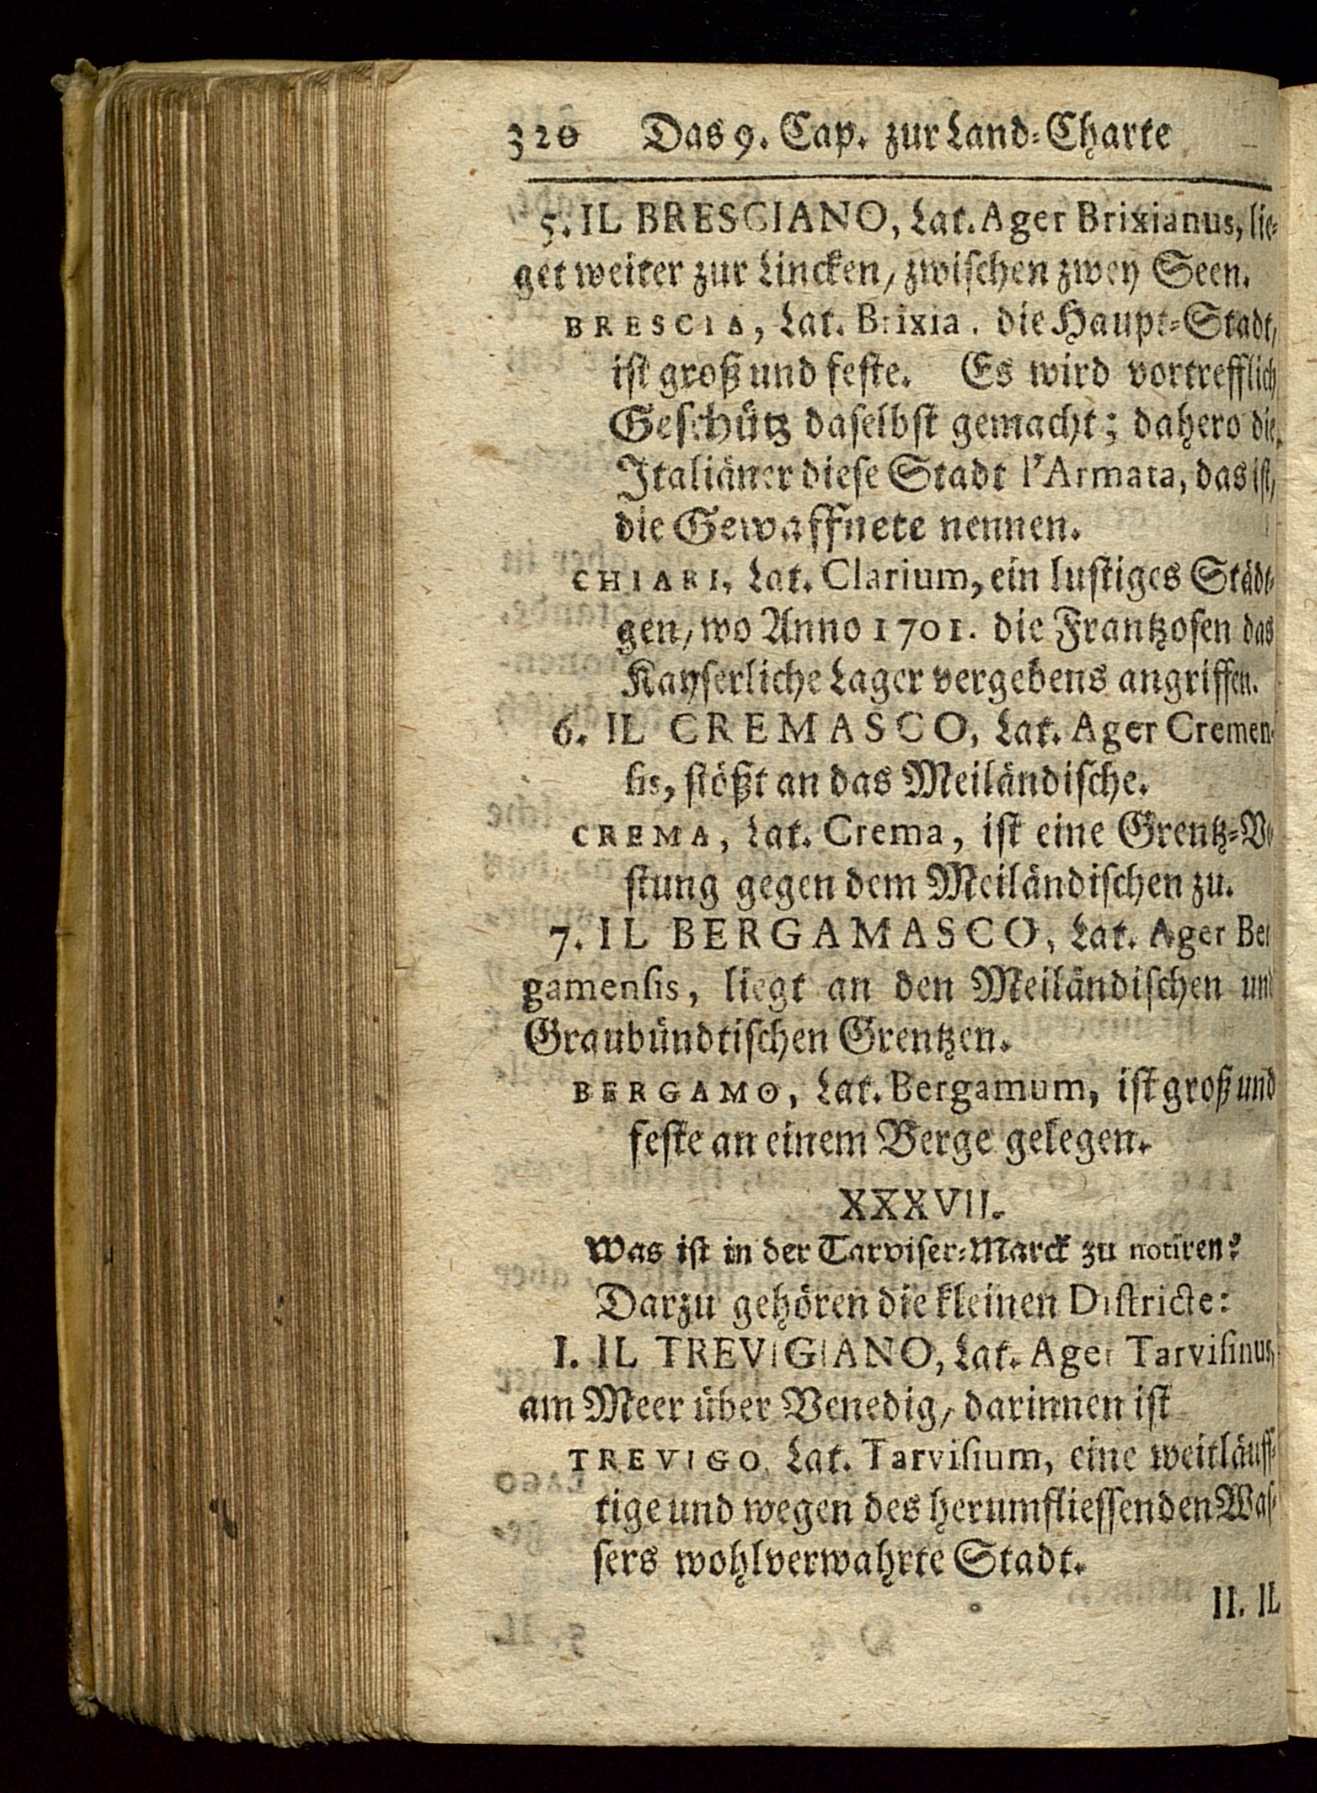 320 Das 9. Cap. zur Land-Charte
5. IL BRESCIANO, Lat. Ager Brixianus, lie-
get weiter zur Lincken/ zwischen zwey Seen.
BRESCIA, Lat. Brixia. die Haupt-Stadt/
ist groß und feste. Es wird vortrefflich
Geschütz daselbst gemacht; dahero die
Italiäner diese Stadt l'Armata, das ist/
die Gewaffnete nennen.
CHIARI, Lat. Clarium, ein lustiges Städt-
gen/ wo Anno 1701. die Frantzosen das
Kayserliche Lager vergebens angriffen.
6. IL CREMASCO, Lat. Ager Cremen-
sis, stößt an das Meiländische.
CREMA, Lat. Crema, ist eine Grentz-Ve-
stung gegen dem Meiländischen zu.
7. IL BERGAMASCO, Lat. Ager Ber
gamensis, liegt an den Meiländischen und
Graubündtischen Grentzen.
BERGAMO, Lat. Bergamum, ist groß und
feste an einem Berge gelegen.
XXXVII.
Was ist in der Tarviser-Marck zu notiren?
Darzu gehören die kleinen Districte:
I. IL TREVIGIANO, Lat. Ager Tarvisinus,
am Meer über Venedig/ darinnen ist
TREVIGO, Lat. Tarvisium, eine weitläuff-
tige und wegen des herumfliessenden Was-
sers wohlverwahrte Stadt.
II. IL